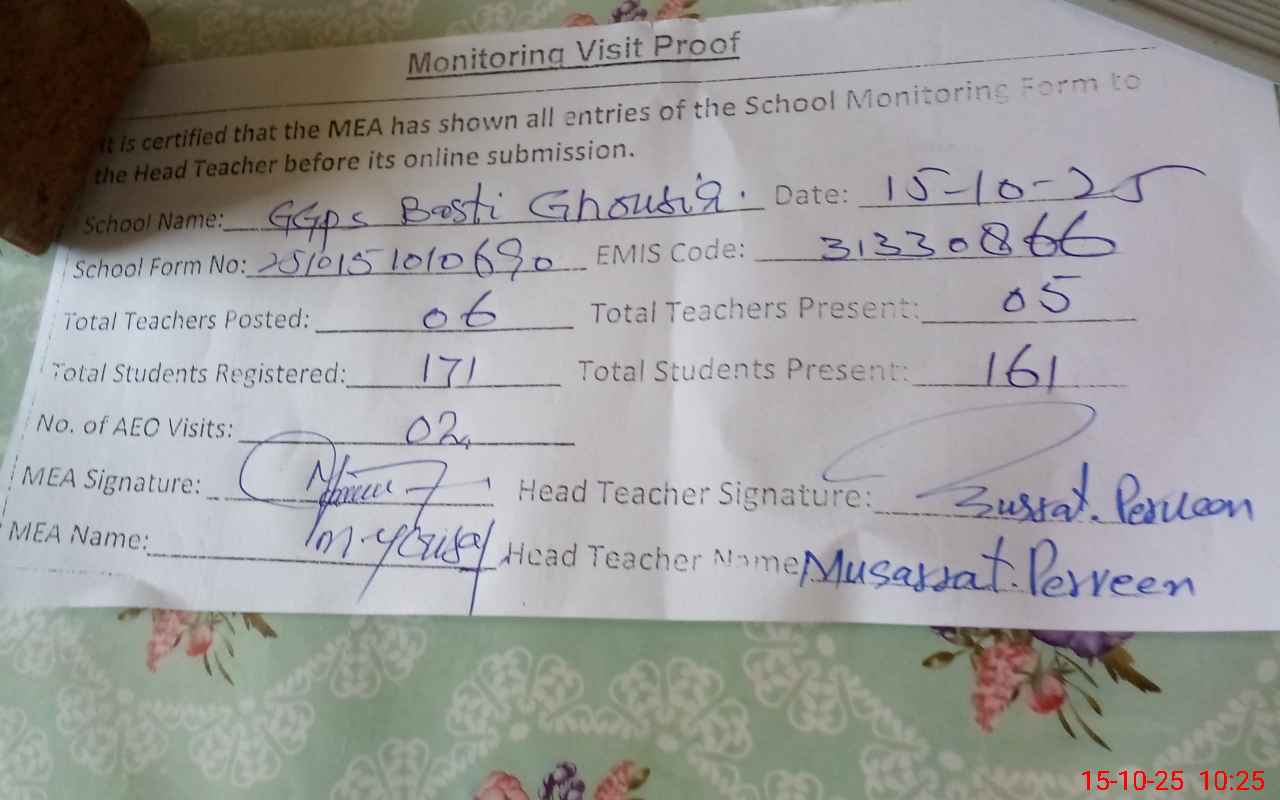 Monitoring Visit Proof
It is certified that the MEA has shown all entries of the School Monitoring Form to
the Head Teacher before its online submission.
School Name: GGps Basti Ghousia. Date: 15-10-25
School Form No: 2510151010690 EMIS Code: 31330866
Total Teachers Posted: 06 Total Teachers Present: 05
Total Students Registered: 171 Total Students Present: 161
No. of AEO Visits: 02
MEA Signature: Head Teacher Signature: Perveen
MEA Name: M. Yousaf Head Teacher Name Musarrat. Perveen
15-10-25 10:25